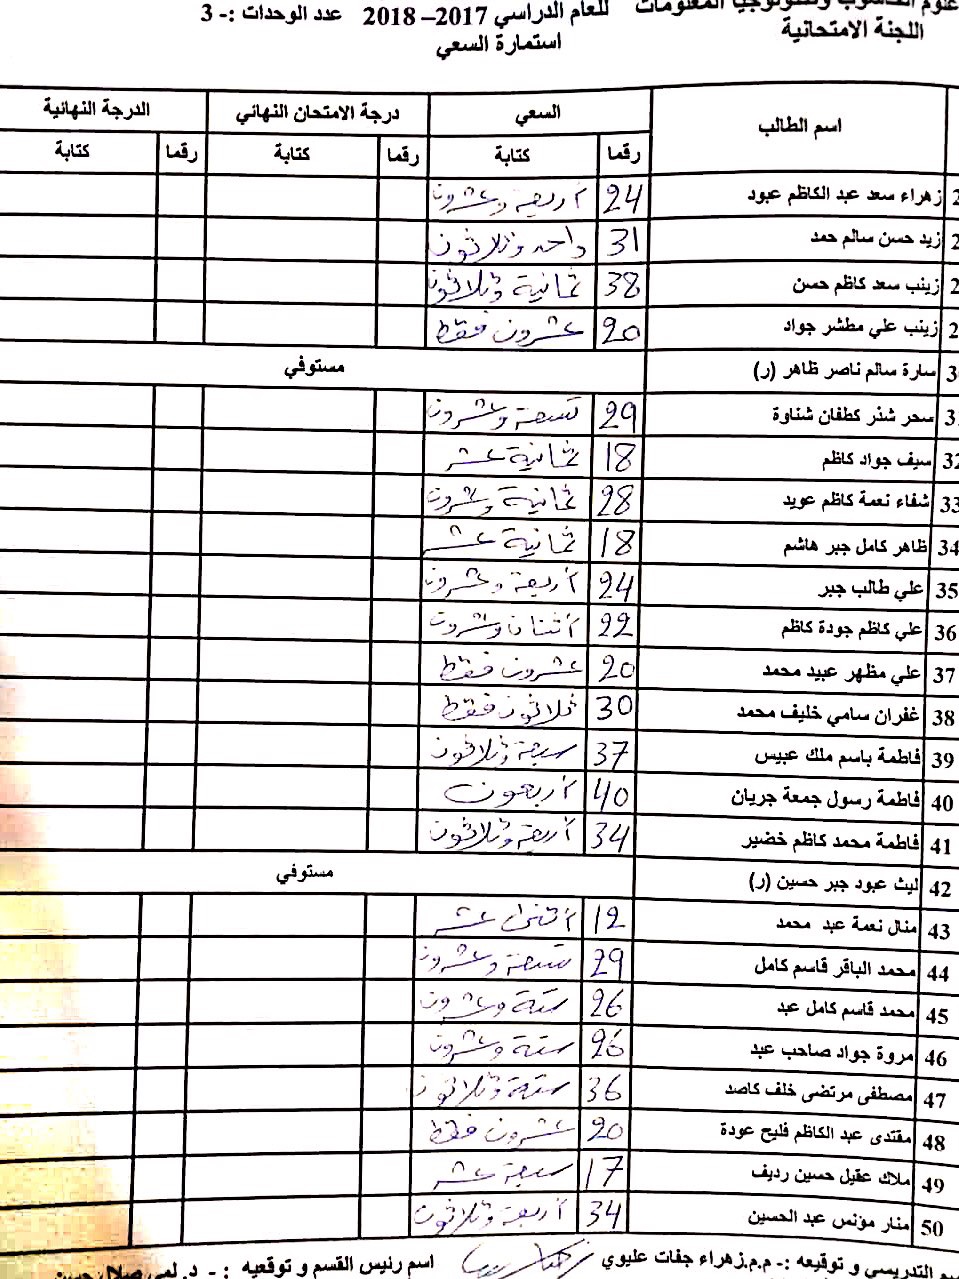 علوم الحاسوب وتكنولوجيا المعلومات للعام الدراسي 2017– 2018 عدد الوحدات :- 3
اللجنة الامتحانية
استمارة السعي
اسم الطالب السعي درجة الامتحان النهائي الدرجة النهائية
رقما كتابة رقما كتابة رقما كتابة
2 زهراء سعد عبد الكاظم عبود 24 أربعة وعشرون
2 زيد حسن سالم حمد 31 واحد وثلاثون
2 زينب سعد كاظم حسن 38 ثمانية وثلاثون
2 زينب علي مطشر جواد 20 عشرون فقط
3 سارة سالم ناصر ظاهر (ر) مستوفي
31 سحر شنر كطفان شناوة 29 تسعة وعشرون
32 سيف جواد كاظم 18 ثمانية عشر
33 شفاء نعمة كاظم عويد 28 ثمانية وعشرون
34 ظاهر كامل جبر هاشم 18 ثمانية عشر
35 علي طالب جبر 24 أربعة وعشرون
36 علي كاظم جودة كاظم 22 أثنان وعشرون
37 علي مظهر عبيد محمد 20 عشرون فقط
38 غفران سامي خليف محمد 30 ثلاثون فقط
39 فاطمة باسم ملك عبيس 37 سبعة وثلاثون
40 فاطمة رسول جمعة جريان 40 أربعون
41 فاطمة محمد كاظم خضير 34 أربعة وثلاثون
42 ليث عبود جبر حسين (ر) مستوفي
43 منال نعمة عبد محمد 12 أثنى عشر
44 محمد الباقر قاسم كامل 29 تسعة وعشرون
45 محمد قاسم كامل عبد 26 ستة وعشرون
46 مروة جواد صاحب عبد 26 ستة وعشرون
47 مصطفى مرتضى خلف كاصد 36 ستة وثلاثون
48 مقتدى عبد الكاظم فليح عودة 20 عشرون فقط
49 ملاك عقيل حسين رديف 17 سبعة عشر
50 منار مؤنس عبد الحسين 34 أربعة وثلاثون
اسم التدريسي و توقيعه :- م.م.زهراء جفات عليوي اسم رئيس القسم و توقيعه :- د. لمى صلال حسن